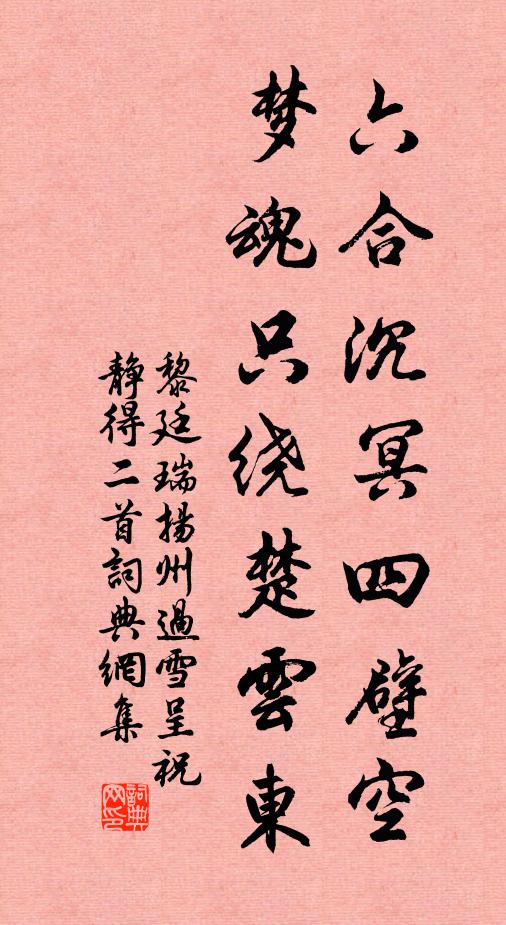 六合沉冥四壁空
梦魂只绕楚雲東
黎廷瑞揚州過雪呈祝
静得二首詞典網集
詞典
网印